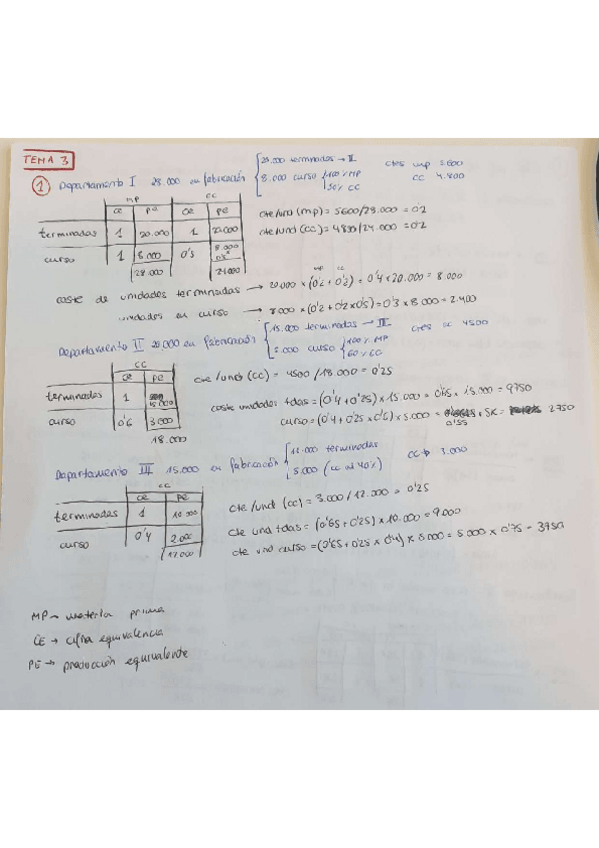 TEMA 3
① Departamento I 28.000 en fabricación { 20.000 terminadas → II ctes mp 5.600
8.000 curso { 100% MP cc 4.800
50% CC
MP CC
CE PE CE PE
terminadas 1 20.000 1 20.000 cte/und (mp) = 5600/28.000 = 0'2
curso 1 8.000 0'5 8.000 cte/und (cc) = 4800/24.000 = 0'2
28.000 24.000
MP CC
coste de unidades terminadas → 20.000 × (0'2 + 0'2) = 0'4 × 20.000 = 8.000
unidades en curso → 8000 × (0'2 + 0'2 × 0'5) = 0'3 × 8.000 = 2.400
Departamento II 20.000 en fabricación { 15.000 terminadas → III ctes cc 4500
5.000 curso { 100% MP
60% CC
CC
CE PE cte/und (cc) = 4500/18.000 = 0'25
terminadas 1 15.000 coste unidades: tdas = (0'4 + 0'25) × 15.000 = 0'65 × 15.000 = 9750
curso 0'6 3.000 curso = (0'4 + 0'25 × 0'6) × 5.000 = 0'55 × 5K = 2.750
18.000
Departamento III 15.000 en fabricación { 10.000 terminadas CC → 3.000
5.000 (cc al 40%)
CC
CE PE cte/und (cc) = 3.000/12.000 = 0'25
terminadas 1 10.000 cte und tdas = (0'65 + 0'25) × 10.000 = 9.000
curso 0'4 2.000 cte und curso = (0'65 + 0'25 × 0'4) × 5000 = 5.000 × 0'75 = 3750
12.000
MP → materia prima
CE → cifra equivalencia
PE → producción equivalente